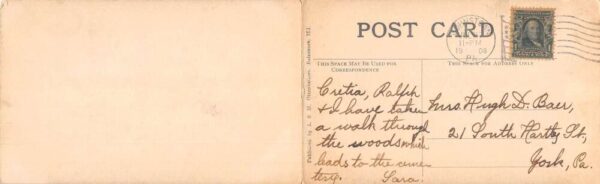 POST CARD
THIS SPACE MAY BE USED FOR
CORRESPONDENCE
THIS SPACE FOR ADDRESS ONLY
11-PM
19 08
PA.
Cretia, Ralph
& I have taken
a walk through
the woods which
leads to the ceme
tery. Sara.
Mrs. Hugh D. Baer,
21 South Hartly St,
York, Pa.